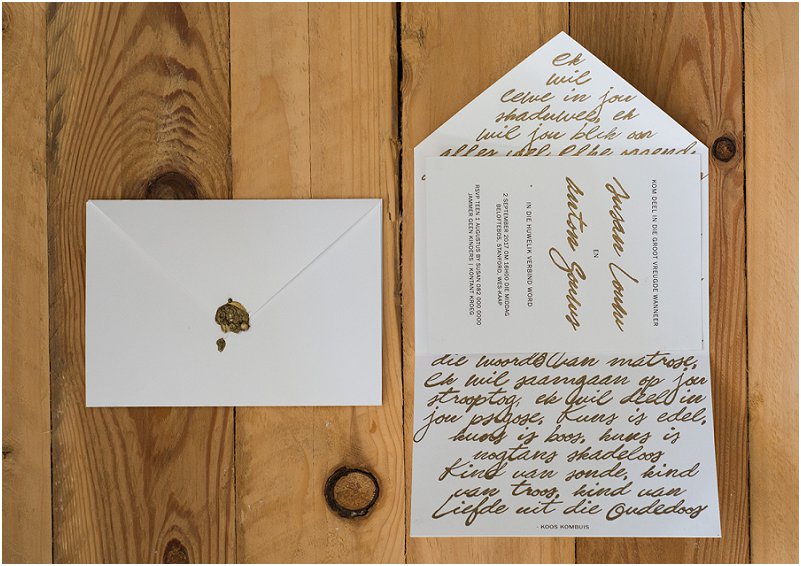 Ek
wil
lewe in jou
skaduwee, ek
wil jou blik oor
KOM DEEL IN DIE GROOT VREUGDE WANNEER
Susan Louw
EN
Anton Gouws
IN DIE HUWELIK VERBIND WORD
2 SEPTEMBER 2017 OM 16H00 DIE MIDDAG
BELOFTEBOS, STANFORD, WES-KAAP
RSVP TEEN 1 AUGUSTUS BY SUSAN 082 000 0000
JAMMER GEEN KINDERS | KONTANT KROEG
die woorde van matrose,
Ek wil saamgaan op jou
strooptog, ek wil deel in
jou psigose, Kuns is edel,
kuns is boos, kuns is
nogtans skadeloos
Kind van sonde, kind
van troos, kind van
Liefde uit die Oudedoos
- KOOS KOMBUIS